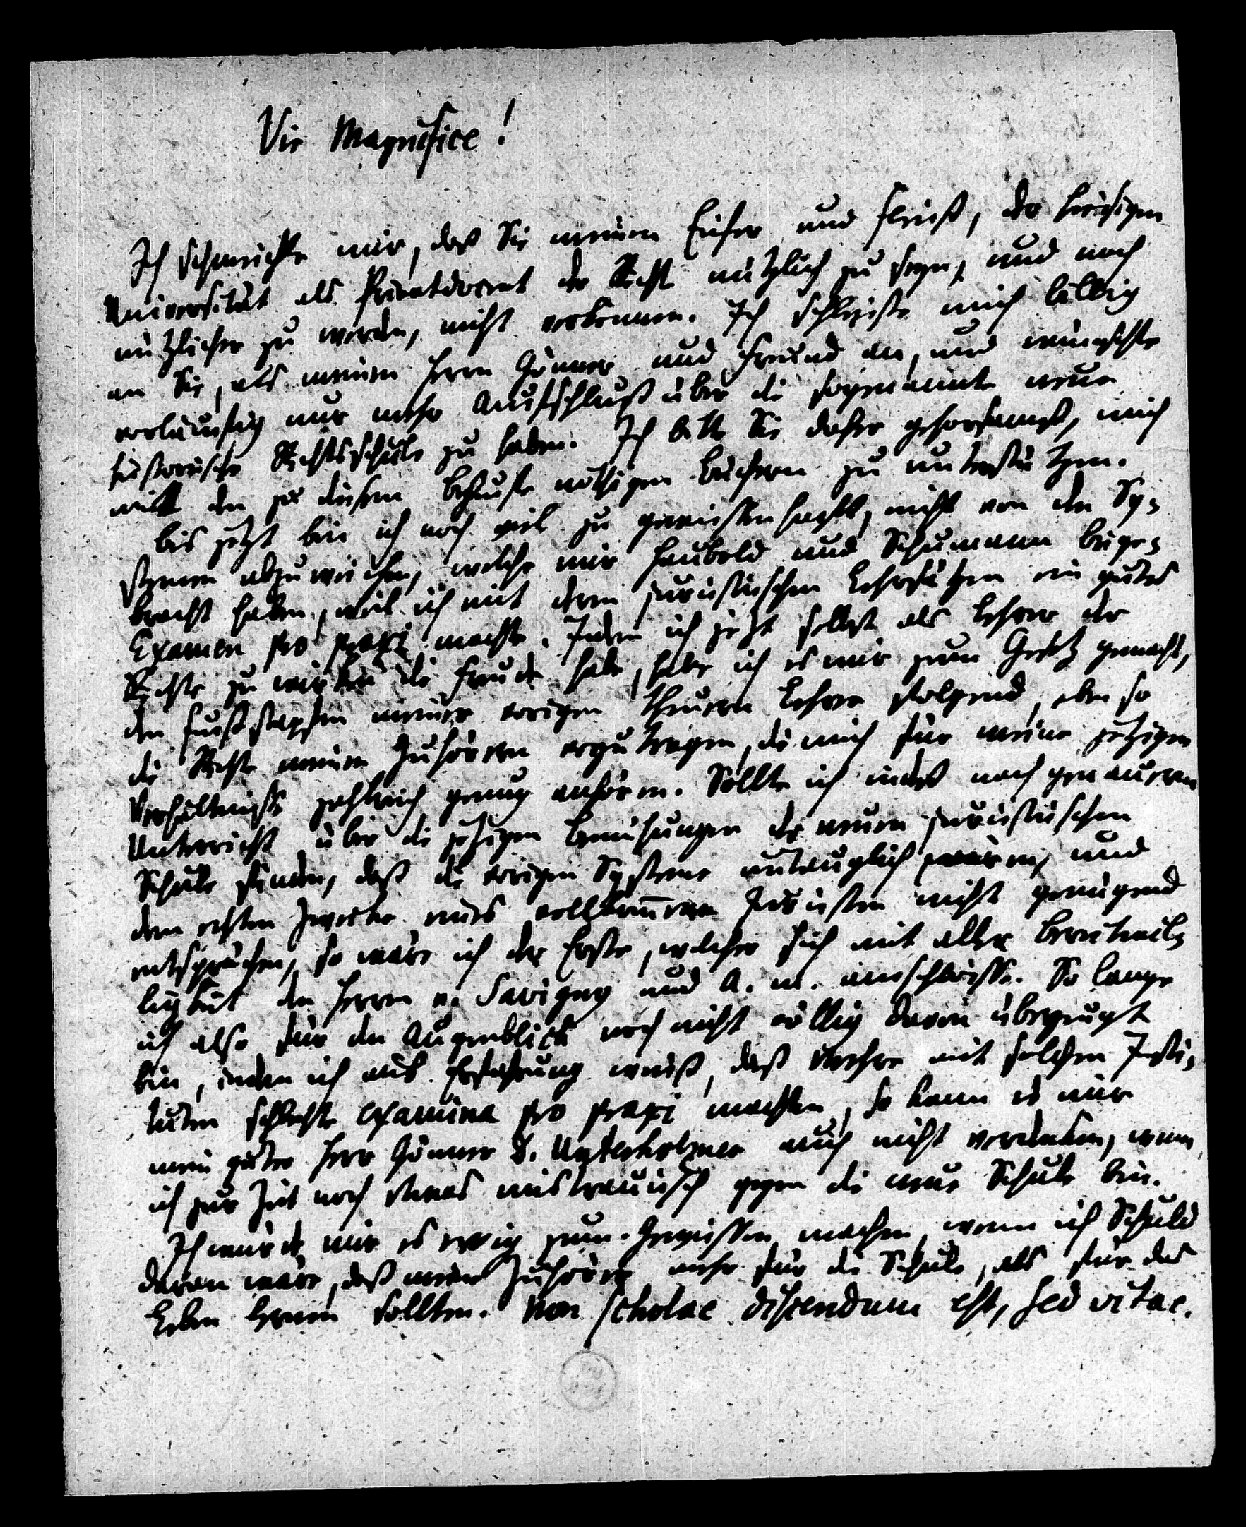 Vir Magnifice!
Ich schmeichle mir, daß Sie meinen Eifer und Fleiß, der hiesigen
Universität als Privatdocent der Rechte nützlich zu seyn, und noch
nützlicher zu werden, nicht verkennen. Ich schließe mich billig
an Sie, als meinen Herrn Gönner und Freund an, und wünschte
vorläufig nur mehr Aufschluß über die sogenannte neue
historische Rechtsschule zu haben. Ich bitte Sie daher gehorsamst, mich
mit den zu diesem Behufe nöthigen Büchern zu unterstützen.
Bis jetzt bin ich noch viel zu gewissenhaft, nicht von den Sy-
stemen abzuweichen, welche mir Haubold und Schumann beige-
bracht haben, weil ich mit deren juristischen Lehrsätzen ein gutes
Examen pro praxi machte. Indem ich jetzt selbst als Lehrer der
Rechte zu wirken die Freude habe, habe ich es mir zum Gesetz gemacht,
den Fußstapfen meiner vorigen theuern Lehrer folgend, eben so
die Rechte meinen Zuhörern vorzutragen, die mich für meine jetzigen
Verhältnisse zahlreich genug anhören. Sollte ich indeß nach genauerem
Unterricht über die jetzigen Bemühungen der neuen juristischen
Schule finden, daß die vorigen Systeme untauglich wären, und
dem ächten Zwecke eines vollkom̅enen Juristen nicht genügend
entsprächen, so wäre ich der Erste, welcher sich mit aller Bereitwil-
ligkeit den Herrn v. Savigny und a. m. anschlösse. So lange
ich also für den Augenblick noch nicht völlig davon überzeugt
bin, indem ich aus Erfahrung weiß, daß mehre mit solchen Insti-
tuten schlechte examina pro praxi machten, so kann es mir
mein guter Herr Gönner D. Unterholzner auch nicht verdenken, wenn
ich zur Zeit noch etwas mistrauisch gegen die neue Schule bin.
Ich würde mir es ewig zum Gewissen machen, wenn ich Schuld
daran wäre, daß meine Zuhörer mehr für die Schule, als für das
Leben lernen sollten. Non scholae discendum est, sed vitae.